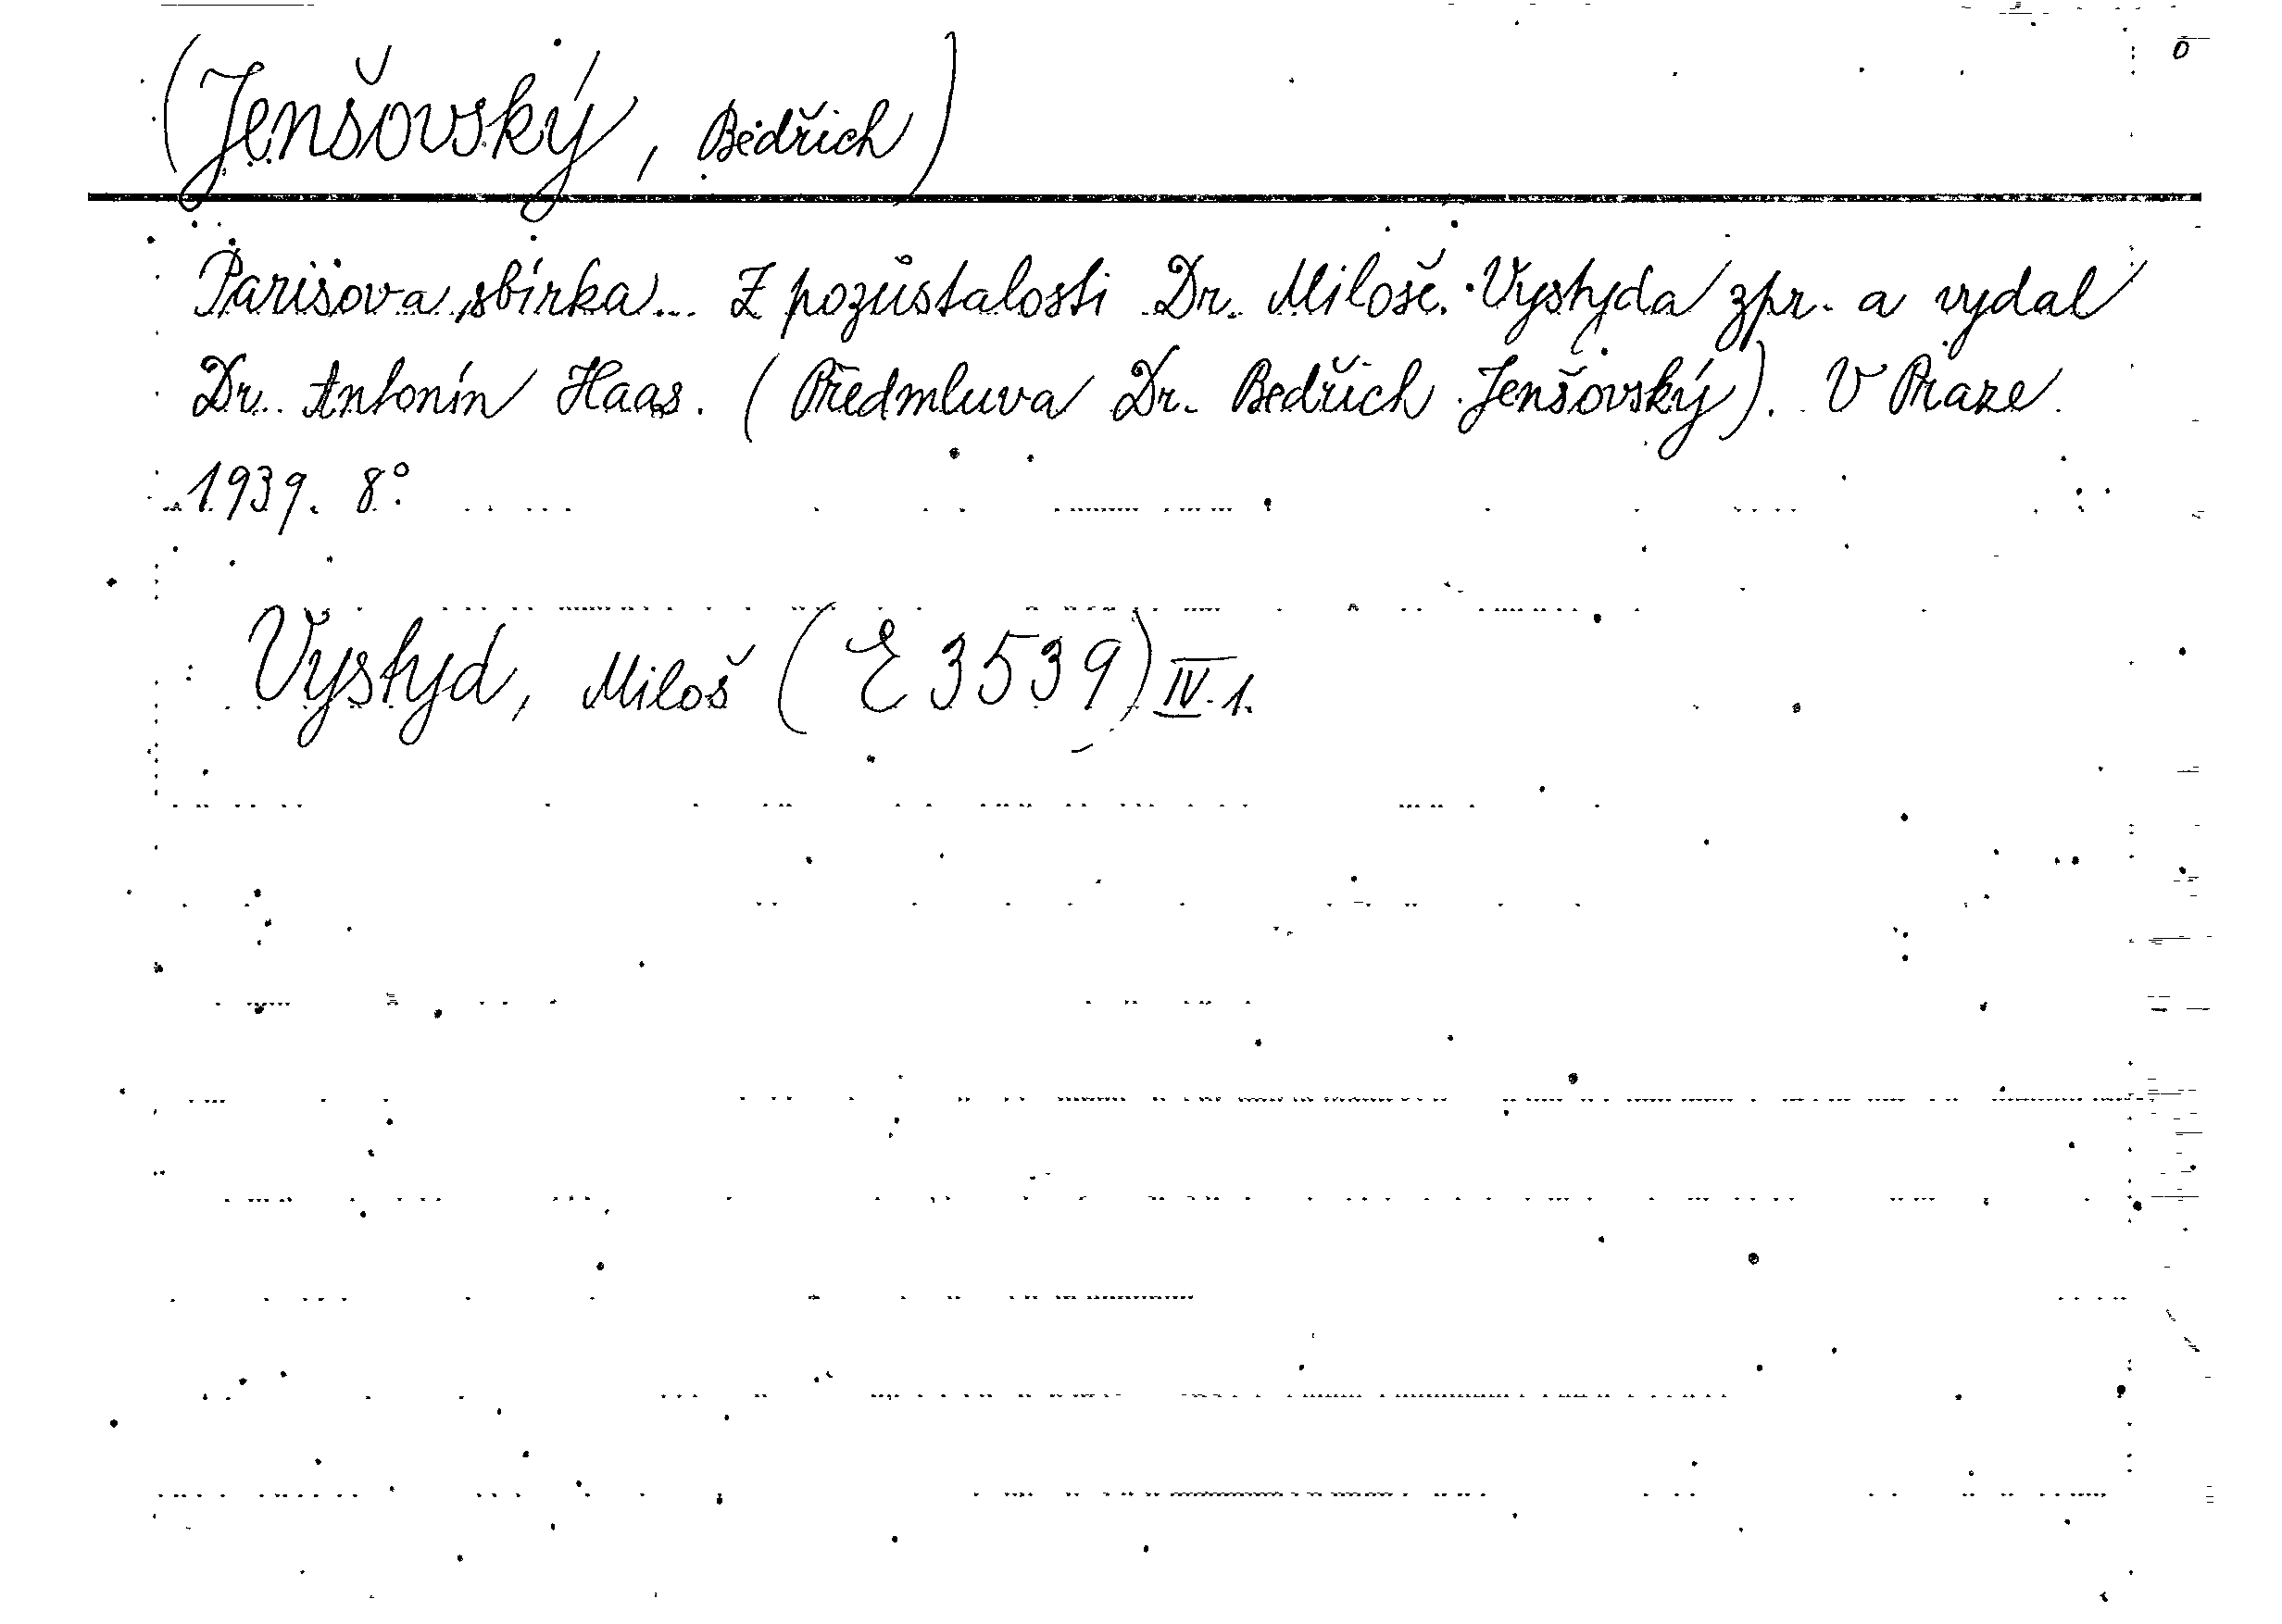 (Jenšovský, Bedřich)
Parisova sbírka... Z pozůstalosti Dr. Miloše Vystyda zpr. a vydal
Dr. Antonín Haas. (Předmluva Dr. Bedřich Jenšovský). V Praze
1939. 8°.
Vystyd, Miloš (E 3539) IV. 1.